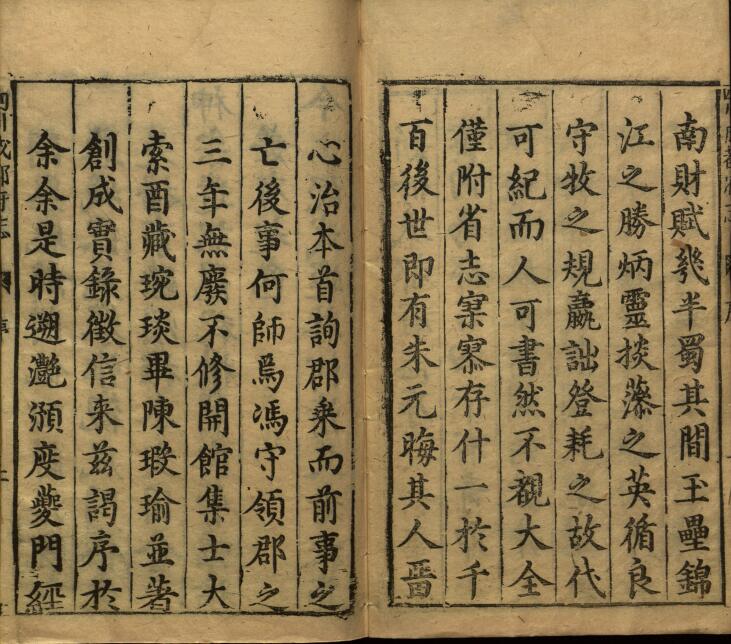 南財賦幾半蜀其間玉壘錦
江之勝炳靈掞藻之英循良
守牧之規羸詘登耗之故代
可紀而人可書然不覩大全
僅附省志寥寥存什一於千
百後世即有朱元晦其人啚
心治本首詢郡乗而前事之
亡後事何師焉馮守領郡之
三年無廢不修開館集士大
索酉藏琬琰畢陳瑕瑜並著
創成實錄徵信来兹謁序於
余余是時遡灎澦度夔門經
四川成都府志
序